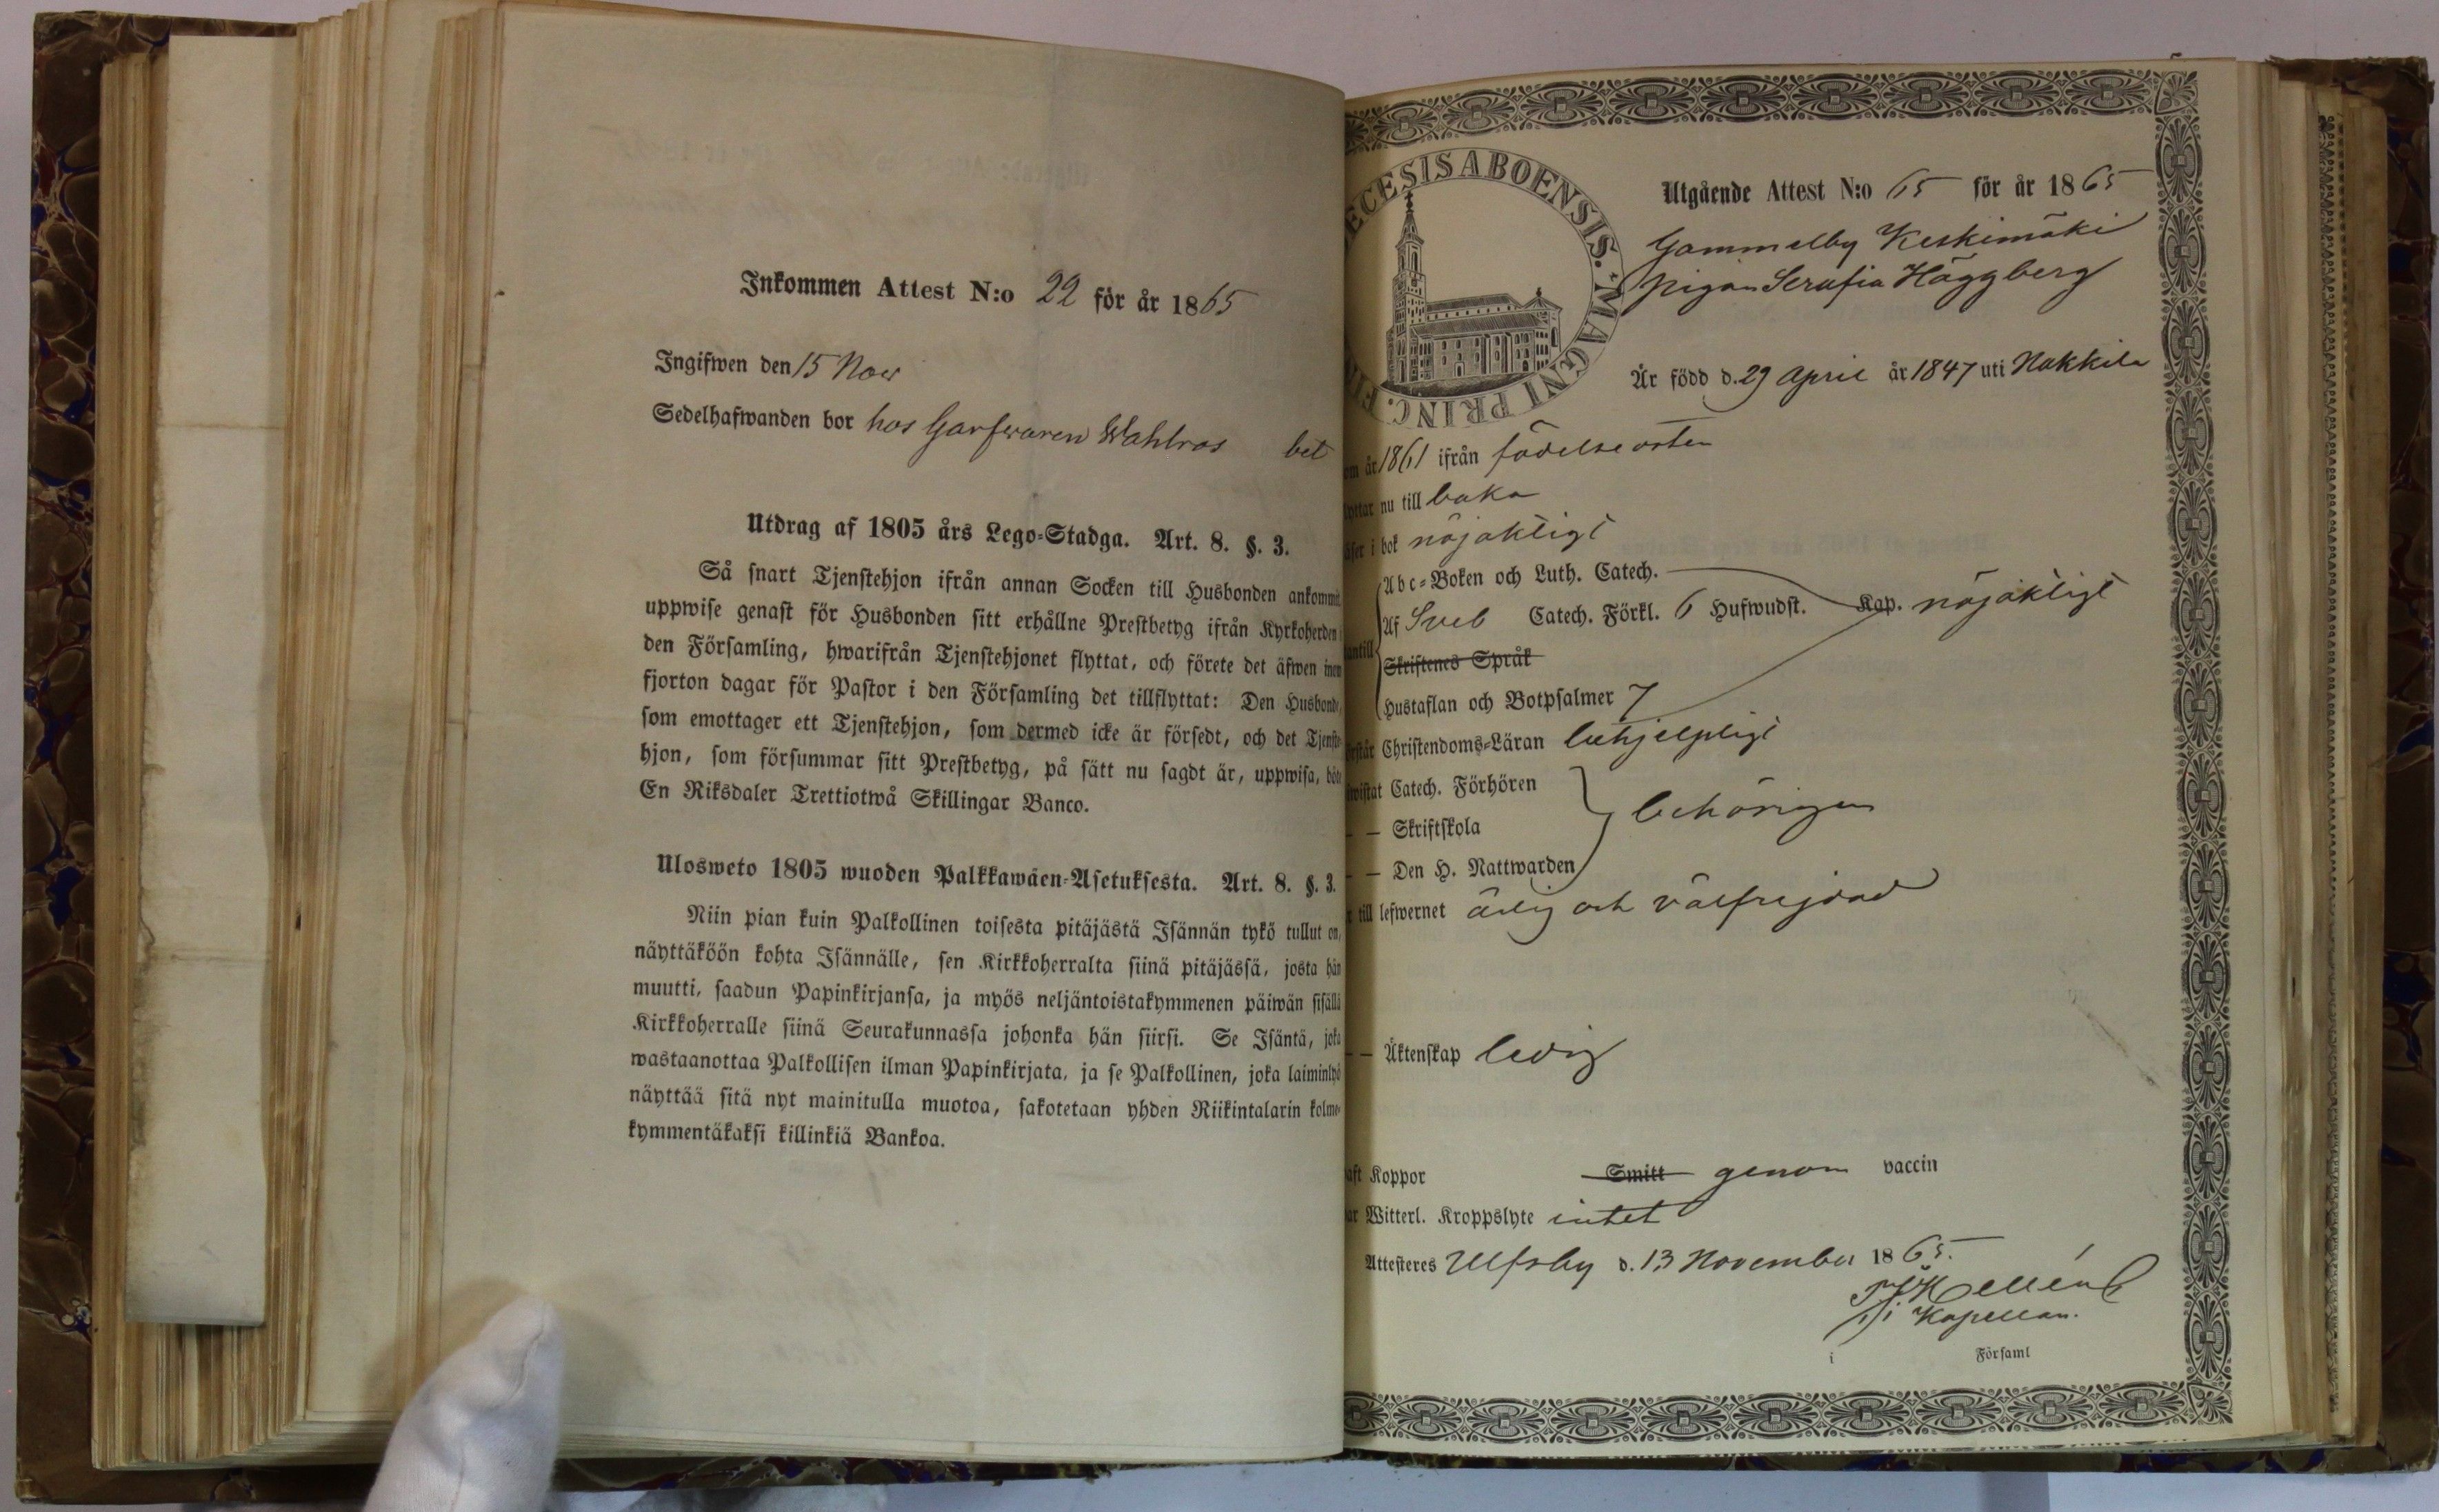 Inkommen Attest N:o 22 för år 1865
Ingifwen den 15 Nov
Sedelhafwanden bor hos Garfvaren Wahlros bet
Utdrag af 1805 års Lego-Stadga. Art. 8. §. 3.
Så snart Tjenstehjon ifrån annan Socken till Husbonden ankommit
uppwise genast för Husbonden sitt erhållne Prestbetyg ifrån Kyrkoherden i
den Församling, hwarifrån Tjenstehjonet flyttat, och förete det äfwen inom
fjorton dagar för Pastor i den Församling det tillflyttat: Den Husbonde,
som emottager ett Tjenstehjon, som dermed icke är försedt, och det Tjenste-
hjon, som försummar sitt Prestbetyg, på sätt nu sagdt är, uppwisa, böte
En Riksdaler Trettiotwå Skillingar Banco.
Ulosweto 1805 wuoden Palkkawäen-Asetuksesta. Art. 8. §. 3.
Niin pian kuin Palkollinen toisesta pitäjästä Isännän tykö tullut on,
näyttäköön kohta Isännälle, sen Kirkkoherralta siinä pitäjässä, josta hän
muutti, saadun Papinkirjansa, ja myös neljäntoistakymmenen päiwän sisällä
Kirkkoherralle siinä Seurakunnassa johonka hän siirsi. Se Isäntä, joka
wastaanottaa Palkollisen ilman Papinkirjata, ja se Palkollinen, joka laiminlyö
näyttää sitä nyt mainitulla muotoa, sakotetaan yhden Riikintalarin kolme-
kymmentäkaksi killinkiä Bankoa.
ECESIS ABOENSIS. MAGNI PRINC. FIN
Utgående Attest N:o 65 för år 1865
Gammelby Keskimäki
pigan Serafia Häggberg
Är född d. 29 April år 1847 uti Nakkila
om år 1861 ifrån födelseorten
lyttar nu till baka
äser i bok nöjaktligt
Abc-Boken och Luth. Catech.
Af Sveb Catech. Förkl. 6 Hufwudst. Kap. nöjaktligt
antill
Skriftenes Språk
Hustaflan och Botpsalmer 7
örstår Christendoms-Läran behjelpligt
iwistat Catech. Förhören
— — Skriftskola behörigen
— — Den H. Nattwarden
r till lefwernet ärlig och välfrejdad
— — Äktenskap ledig
aft Koppor Smitt genom vaccin
ar Witterl. Kroppslyte intet
Attesteres Ulfsby d. 13 November 1865.
Hellén
Kapellan.
i Församl